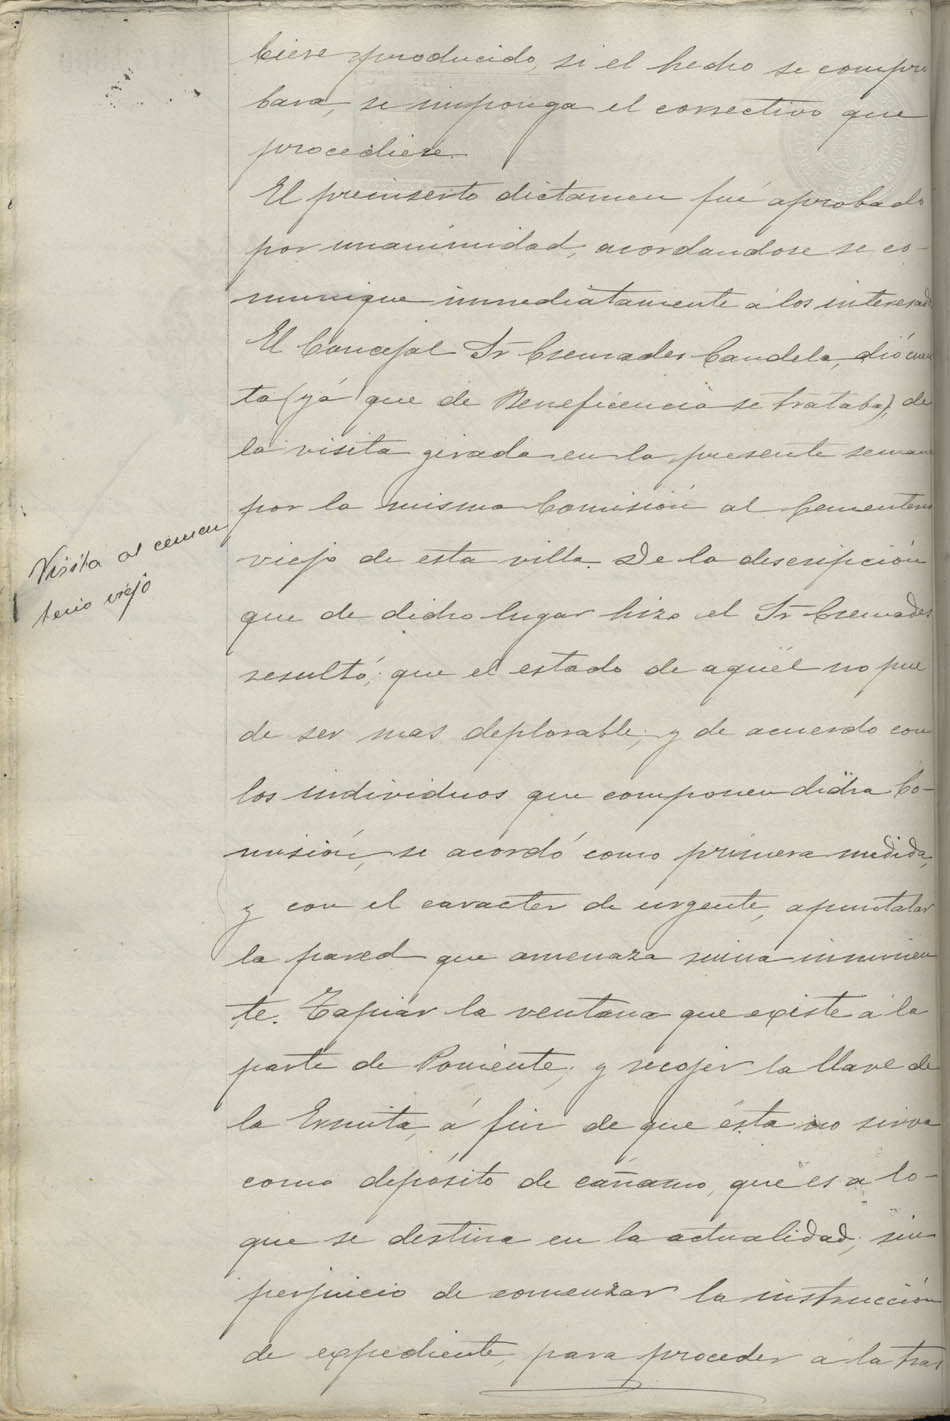 biere producido, si el hecho se compro
bara, se imponga el correctivo que
procediere.
El preinserto dictamen fué aprobado
por unanimidad, acordandose se co-
munique inmediatamente á los interesad
El Concejal Sr Cremades Candela, dió cuen
ta (yá que de Beneficencia se trataba), de
la visita girada en la presente semana
por la misma Comisión al Cementerio
viejo de esta villa. De la descripción
que de dicho lugar hizo el Sr Cremades
resultó; que el estado de aquél no pue
de ser mas deplorable, y de acuerdo con
los individuos que componen dicha Co-
misión, se acordó como primera medida,
y con el caracter de urgente, apuntalar
la pared que amenaza ruina inminen
te. Tapiar la ventana que existe á la
parte de Poniente, y recojer la llave de
la Ermita, á fin de que ésta no sirva
como depósito de cáñamo, que es a lo-
que se destina en la actualidad, sin
perjuicio de comenzar la instrucción
de expediente, para proceder á la tras
Visita al cemen
terio viejo